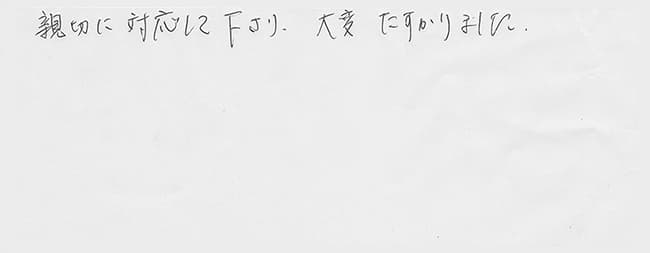 親切に対応して下さり、大変たすかりました。